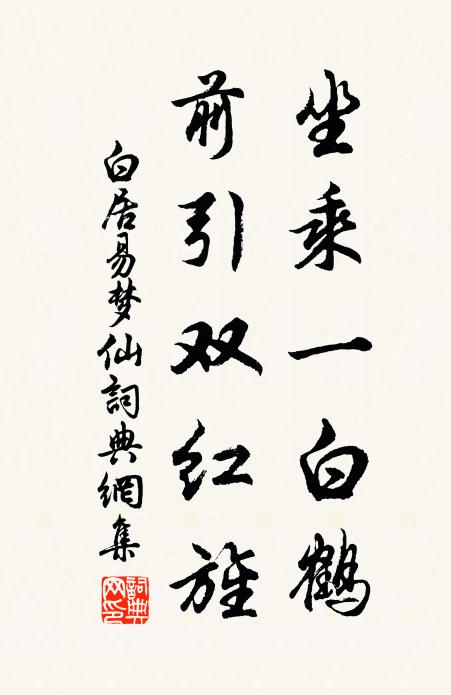 坐乘一白鹤
前引双红旌
白居易梦仙詞典網集
詞典網印